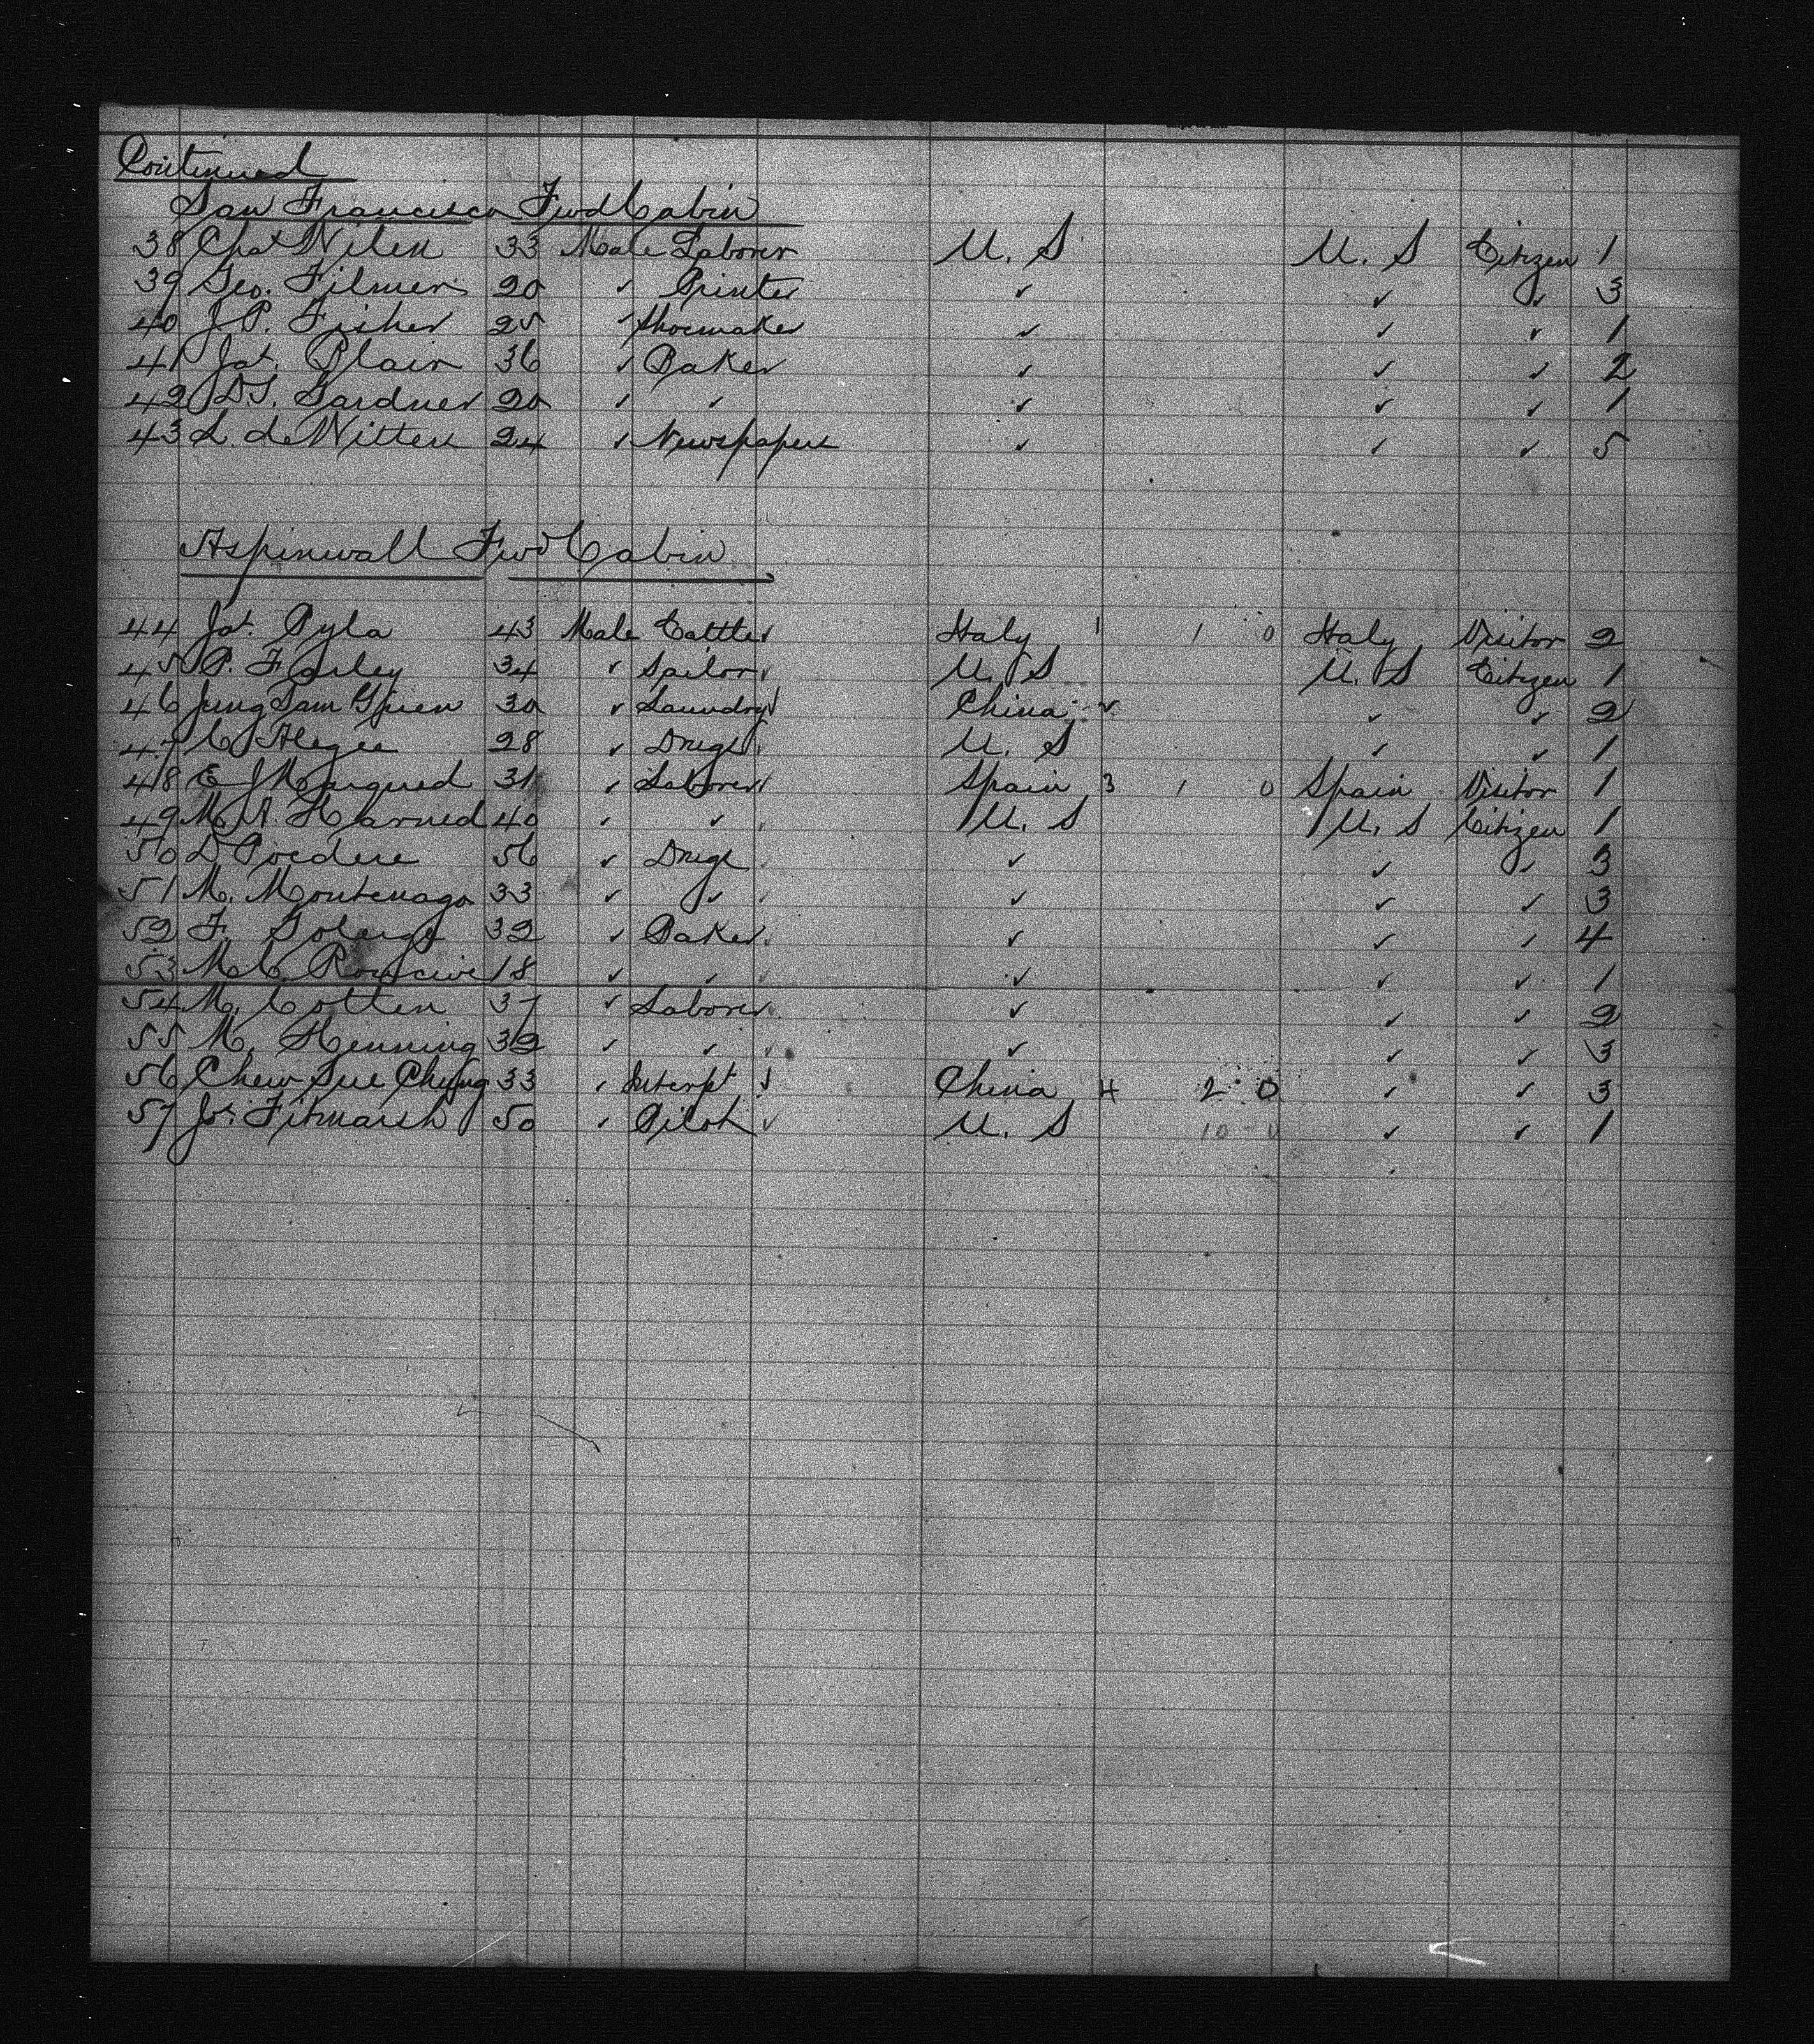 Continued
San Francisco Fwd Cabin
38 Chas Wilen 33 Male Laborer U. S U. S Citizen 1
39 Geo. Filmer 20 ✓ Printer ✓ ✓ ✓ 3
40 J. P. Fisher 25 ✓ Shoemaker ✓ ✓ ✓ 1
41 Jas. Blair 36 ✓ Baker ✓ ✓ ✓ 2
42 D. S. Gardner 20 ✓ ✓ ✓ ✓ ✓ 1
43 L de Witten 24 ✓ Newspapers ✓ ✓ ✓ 5
Aspinwall Fwd Cabin
44 Jas. Pyla 43 Male Cattler Italy 1 1 0 Italy Visitor 2
45 P. Farley 34 ✓ Sailor ✓ U. S U. S Citizen 1
46 Jung Sam 30 ✓ Laundry ✓ China ✓ ✓ ✓ 2
47 C. 28 ✓ Drugs U. S ✓ ✓ 1
48 E J 31 ✓ Laborer ✓ Spain 3 1 0 Spain Visitor 1
49 M. A. Harned 40 ✓ ✓ U. S U. S Citizen 1
50 D 56 ✓ ✓ ✓ ✓ 3
51 M. Montenago 33 ✓ ✓ ✓ ✓ ✓ 3
52 F 32 ✓ Baker ✓ ✓ ✓ 4
53 M. C. 18 ✓ ✓ ✓ ✓ ✓ ✓ 1
54 M. Cotten 37 ✓ Laborer ✓ ✓ ✓ ✓ 2
55 M. Henning 32 ✓ ✓ ✓ ✓ ✓ ✓ 3
56 Chew Sue Chung 33 ✓ Interpt ✓ China 4 2 0 ✓ ✓ 3
57 Js. Fitmarsh 50 ✓ Pilot ✓ U. S 10 - 0 ✓ ✓ 1